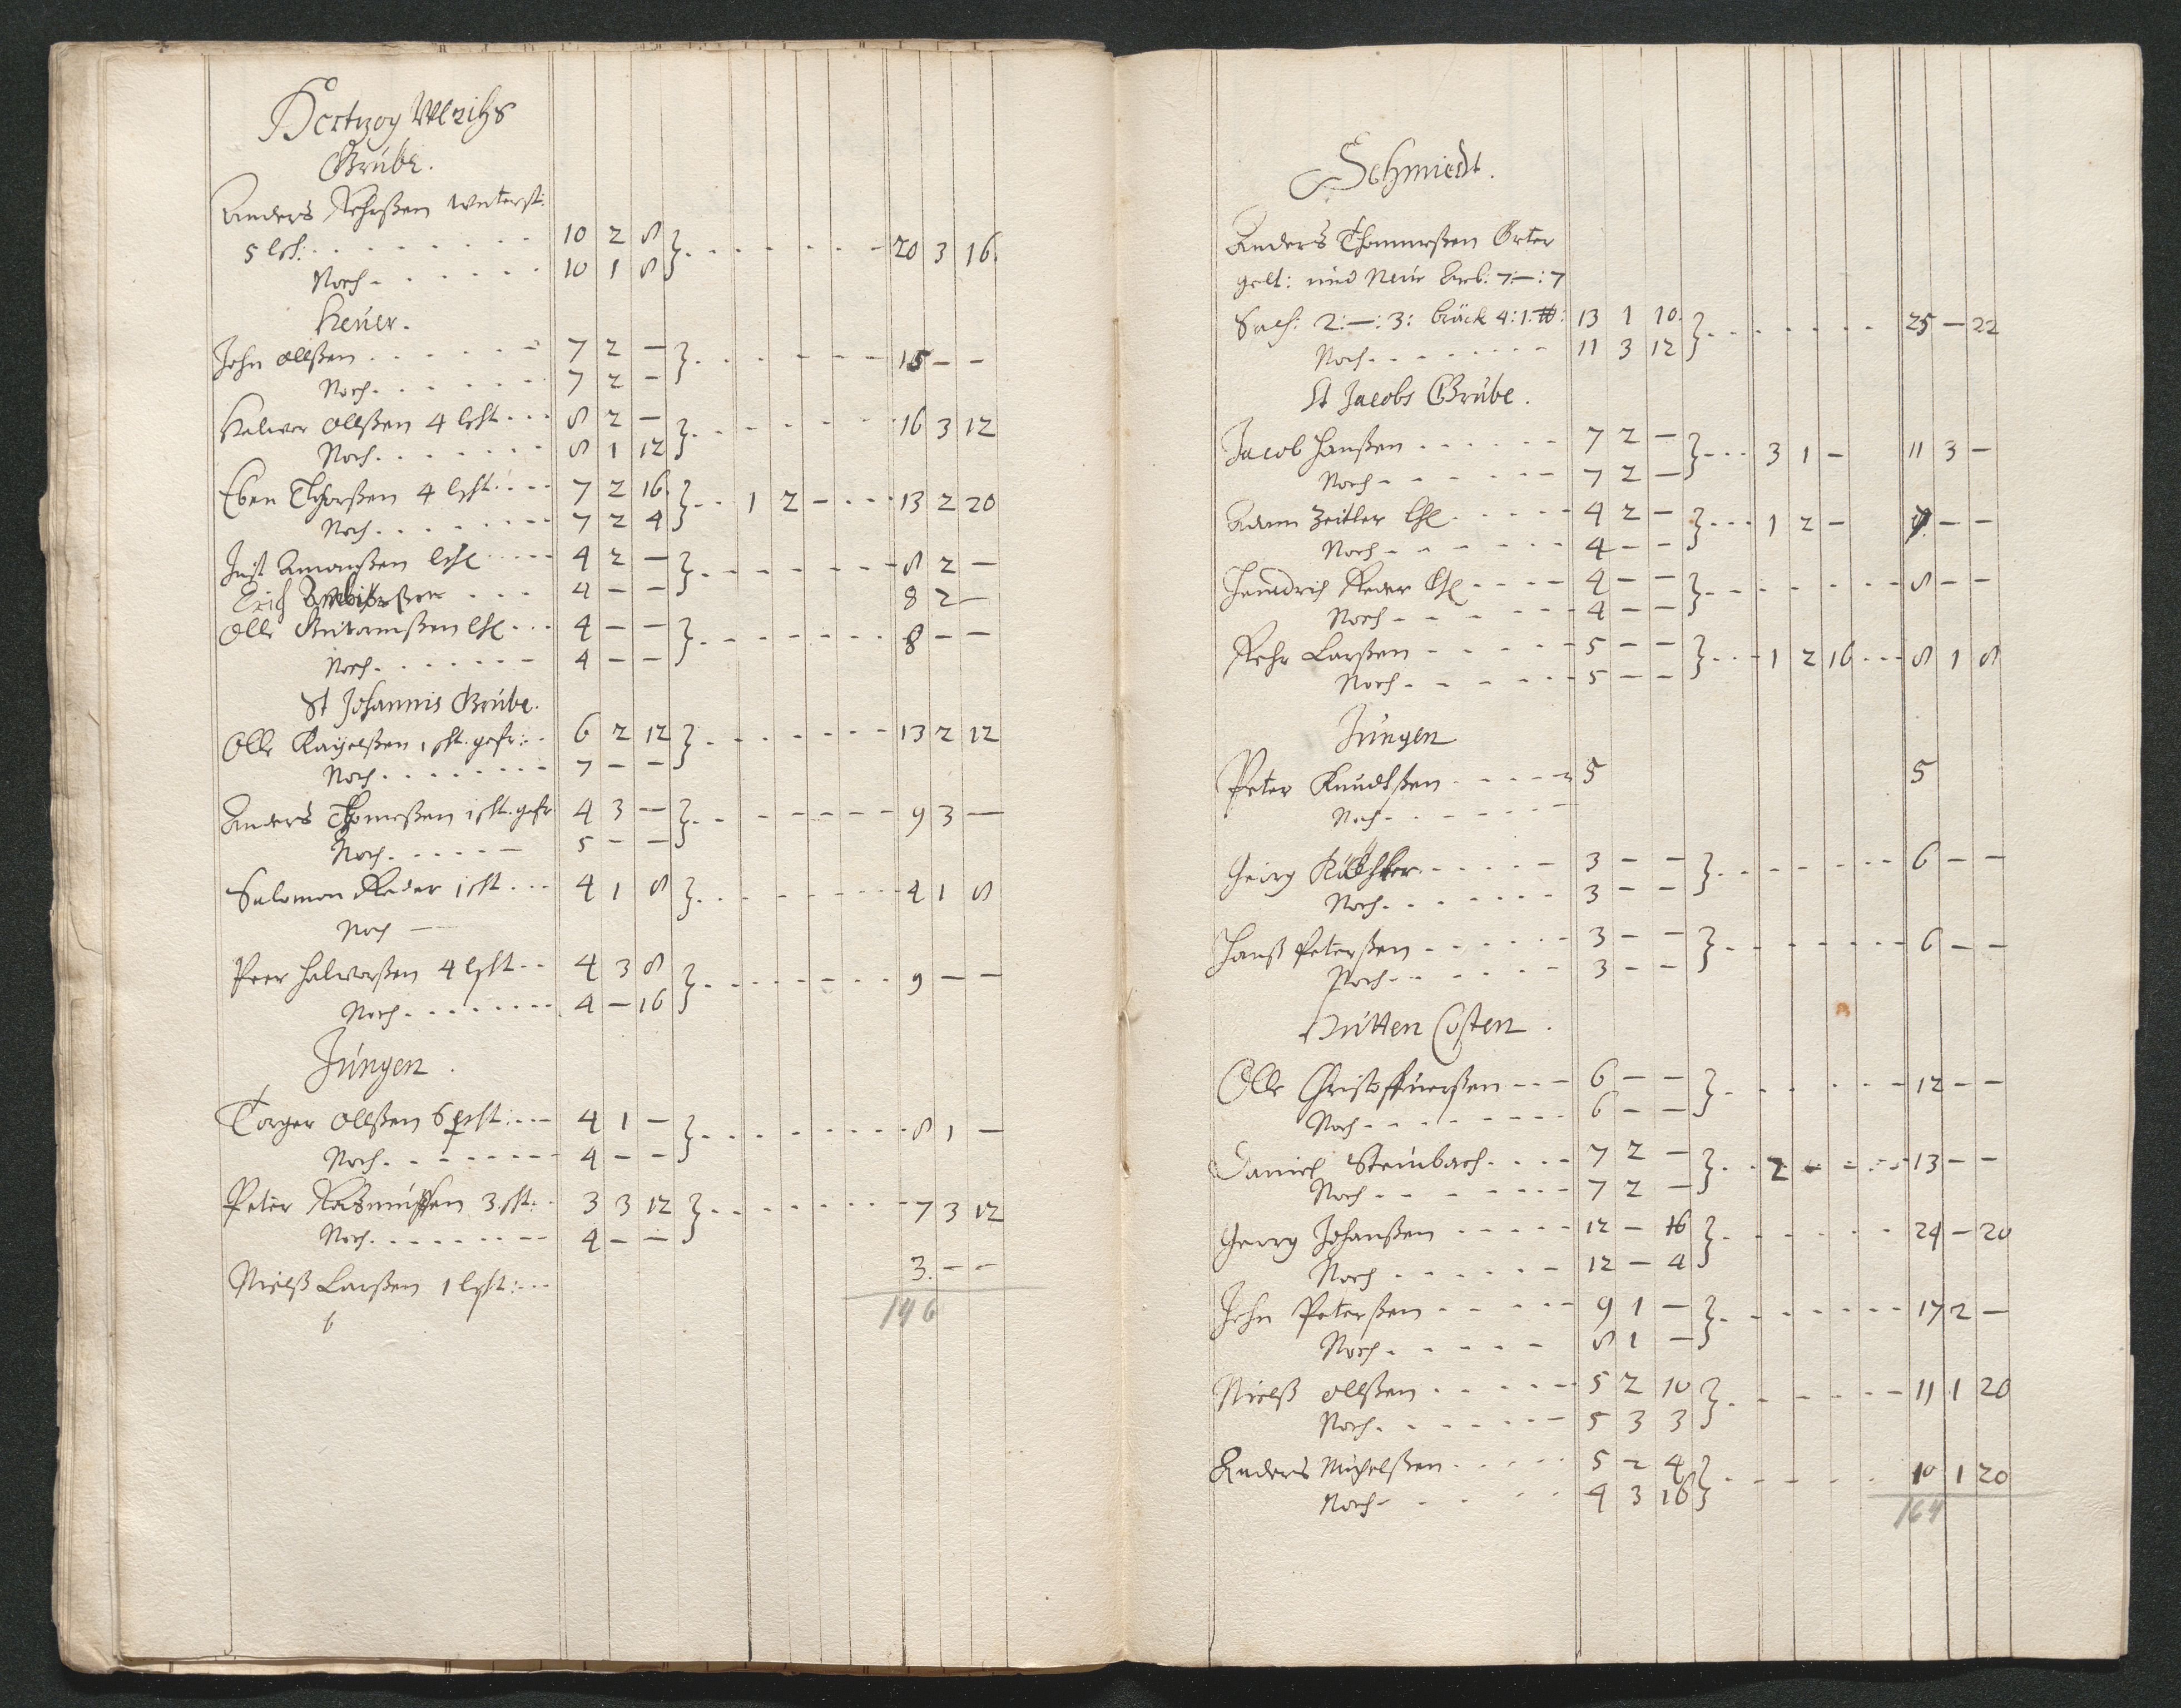 Hertzog Ulrichs
Grube.
Anders Rehrßen
5 lsch: 10 2 8 } 20 3 16.
Noch 10 1 8
Heuer.
John Ollßen 7 2 — } 15 — —
Noch 7 2 —
Halvor Ollßen 4 lscht 8 2 — } 16 3 12
Noch 8 1 12
Eben Thorßen 4 lscht 7 2 16. } 1 2 — 13 2 20
Noch 7 2 4
Just Amonßen 4 2 — } 8 2 —
Erich 4 — — 8 2 —
Olle 4 — — } 8 — —
Noch 4 — —
St Johannis Grube.
Olle 1 scht. gefr: 6 2 12 } 13 2 12
Noch 7 — —
Anders Thomeßen 1 scht. gefr 4 3 — } 9 3 —
Noch 5 — —
Salomon Reder 1 scht 4 1 8 } 4 1 8
Noch —
Peer Halvorßen 4 lscht 4 3 8 } 9 — —
Noch 4 — 16
Jungen.
Torger Ollßen 6 scht: 4 1 — } 8 1 —
Noch 4 — —
Peter Raßmußen 3. scht: 3 3 12 } 7 3 12
Noch 4 — —
Nielß Larßen 1 lscht: 3. — —
6 146
Schmiedt.
Anders Thommeßen Örter
gelt: und Neue Arb: 7:—:7
Sach: 2:—:3: bräck 4:1: 13 1 10. } 25 — 22
Noch 11 3 12
St Jacobs Grube.
Jacob Hanßen 7 2 — } 3 1 — 11 3 —
Noch 7 2 —
Adam Zeitler 4 2 — } 1 2 — 7. — —
Noch 4 — —
Hendrich Reder 4 — — } 8 — —
Noch 4 — —
Rehr Larßen 5 — — } 1 2 16 8 1 8
Noch 5 — —
Jungen
Peter Knudtßen 5 5
Noch
Georg 3 — — } 6 — —
Noch 3 — —
Hanß Peterßen 3 — — } 6 — —
Noch 3 — —
Hütten Costen.
Olle Christoffuerßen 6 — — } 12 — —
Noch 6 — —
Daniel Steinbach 7 2 — } 2 13 — —
Noch 7 2 —
Georg Johanßen 12 — 16 } 24 — 20
Noch 12 — 4
John Peterßen 9 1 — } 17 2 —
Noch 8 1 —
Nielß Ollßen 5 2 10 } 11 1 20
Noch 5 3 3
Anders Michelßen 5 2 4 } 10 1 20
Noch 4 3 16
164